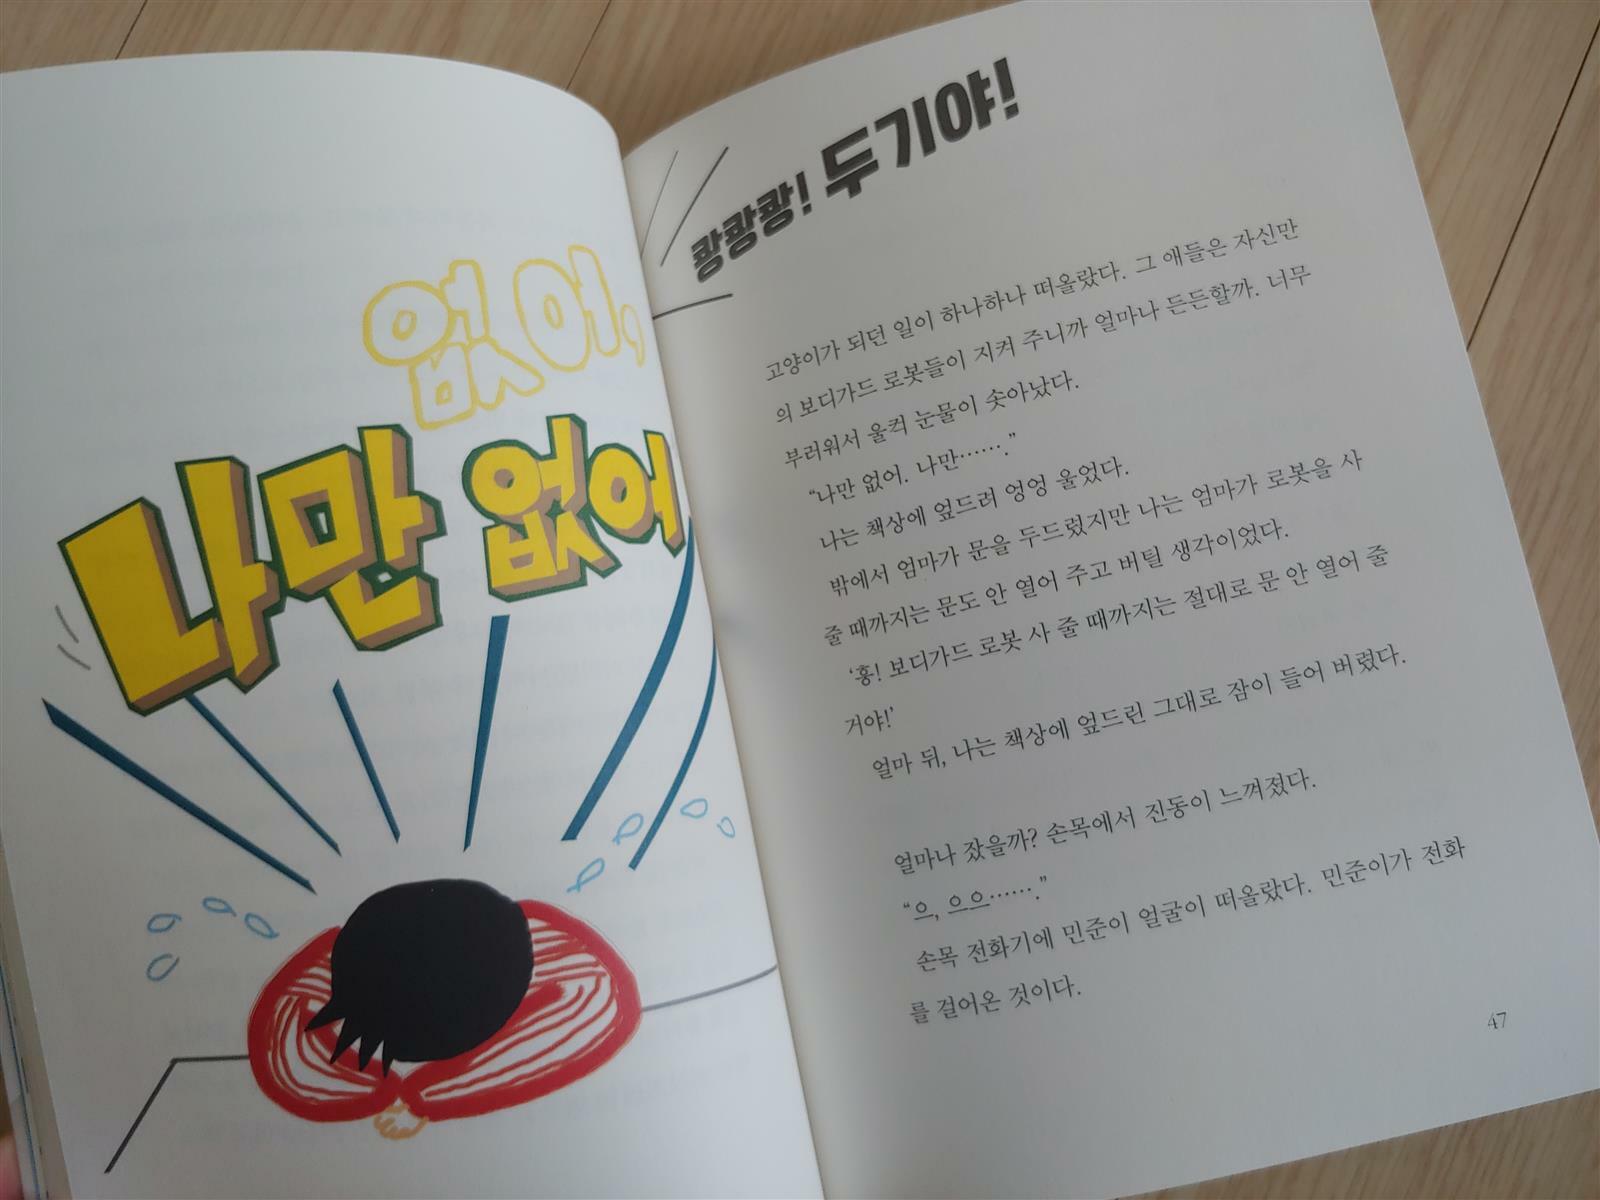 없어,
나만 없어
쾅쾅쾅! 두기야!
고양이가 되던 일이 하나하나 떠올랐다. 그 애들은 자신만
의 보디가드 로봇들이 지켜 주니까 얼마나 든든할까. 너무
부러워서 울컥 눈물이 솟아났다.
“나만 없어. 나만…….”
나는 책상에 엎드려 엉엉 울었다.
밖에서 엄마가 문을 두드렸지만 나는 엄마가 로봇을 사
줄 때까지는 문도 안 열어 주고 버틸 생각이었다.
‘흥! 보디가드 로봇 사 줄 때까지는 절대로 문 안 열어 줄
거야!’
얼마 뒤, 나는 책상에 엎드린 그대로 잠이 들어 버렸다.
얼마나 잤을까? 손목에서 진동이 느껴졌다.
“으, 으으…….”
손목 전화기에 민준이 얼굴이 떠올랐다. 민준이가 전화
를 걸어온 것이다.
47